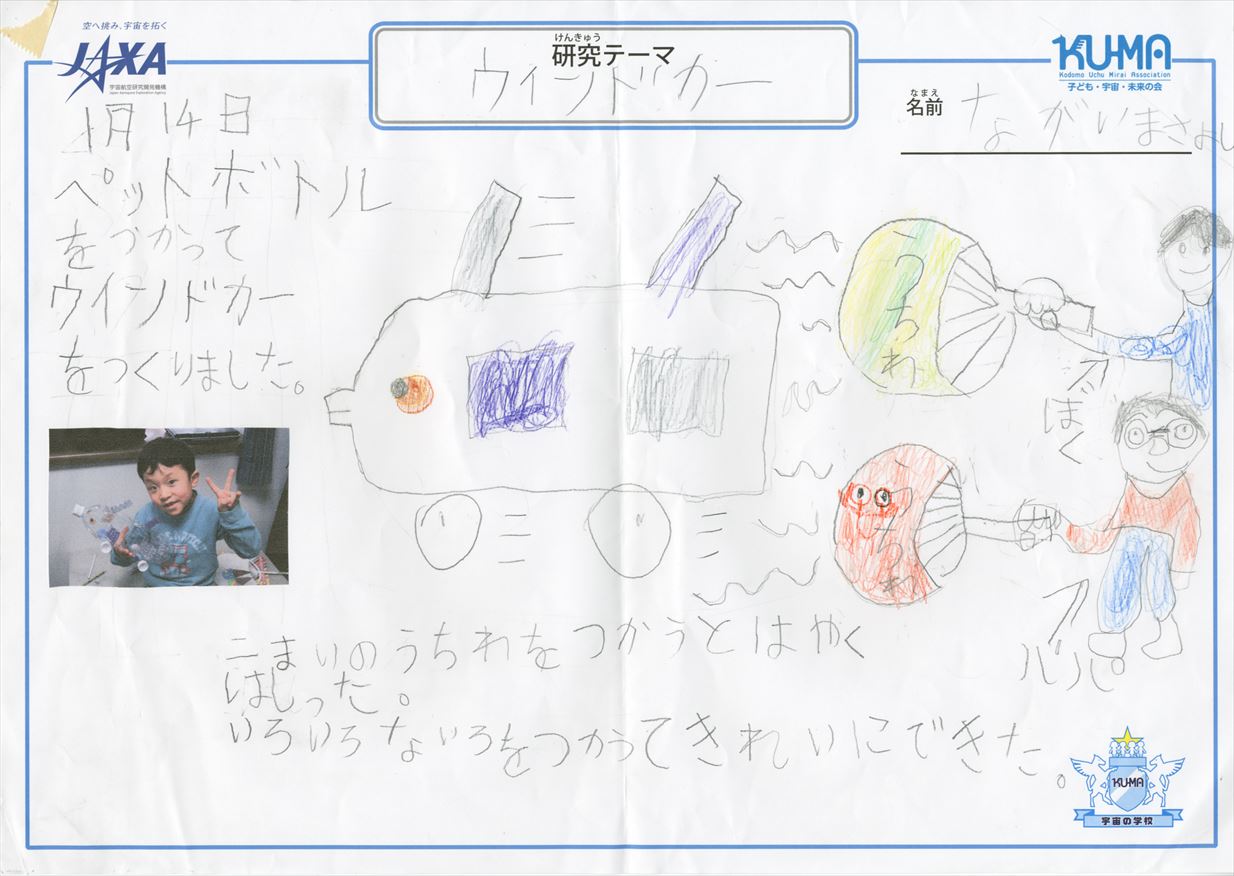 空へ挑み、宇宙を拓く
JAXA
宇宙航空研究開発機構
Japan Aerospace Exploration Agency
けんきゅう
研究テーマ
ウインドカー
KU-MA
Kodomo Uchu Mirai Association
子ども・宇宙・未来の会
なまえ
名前
ながいまさよし
1月14日
ペットボトル
をつかって
ウインドカー
をつくりました。
うちわ
ぼく
うちわ
パパ
二まいのうちわをつかうとはやく
はしった。
いろいろないろをつかってきれいにできた。
KU-MA
宇宙の学校